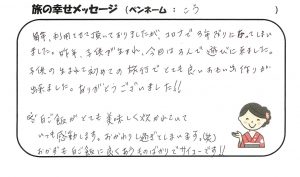 旅の幸せメッセージ (ペンネーム: こう )
毎年、利用させて頂いておりましたが、コロナで3年ぶりになってしまい
ました。昨年、子供が生まれ、今回は3人で遊びに来ました。
子供の生まれて初めての旅行でとても良いおもいで作りが
出来ました。ありがとうございました!!
白ご飯がとても美味しく炊かれていて
いつも感動します。おかわりし過ぎてしまいます。(笑)
おかずも白ご飯に良くあうものばかりでサイコーです!!